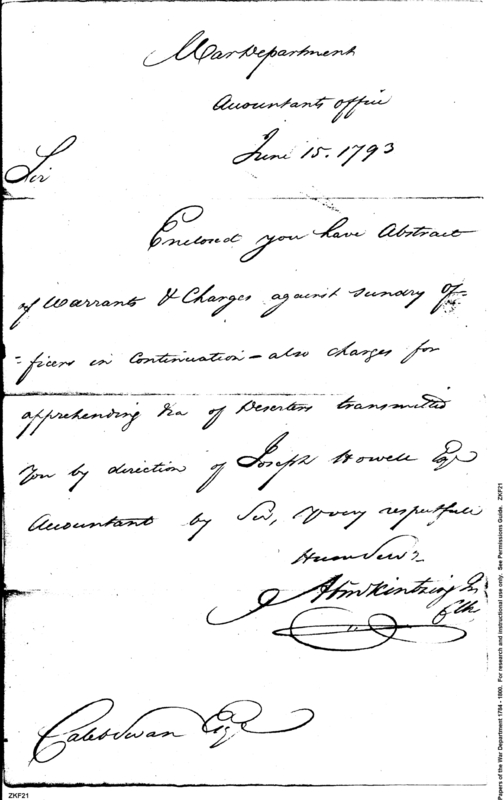 War Department
Accountants office
June 15. 1793
Sir
Enclosed you have Abstract
of Warrants & Charges against sundry of=
=ficers in Continuation - also charges for
apprehending &ca of Deserters transmitted
You by direction of Joseph Howell Esqr
Accountant by Sir, Your very respectfull
Hum Servt
Abm Kintzing Jr
Clk
Caleb Swan Esqr
ZKF21
Papers of the War Department 1784 - 1800. For research and instructional use only. See Permissions Guide. ZKF21